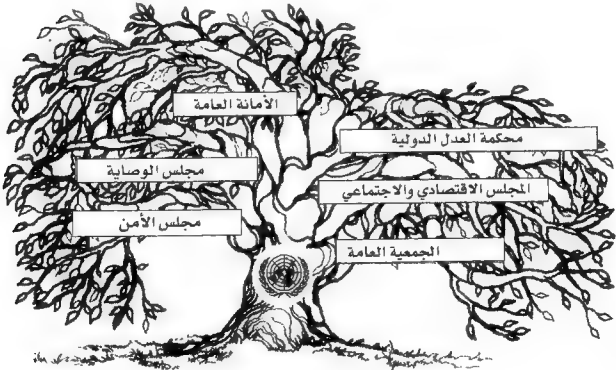 الأمانة العامة
محكمة العدل الدولية
مجلس الوصاية
المجلس الاقتصادي والاجتماعي
مجلس الأمن
الجمعية العامة